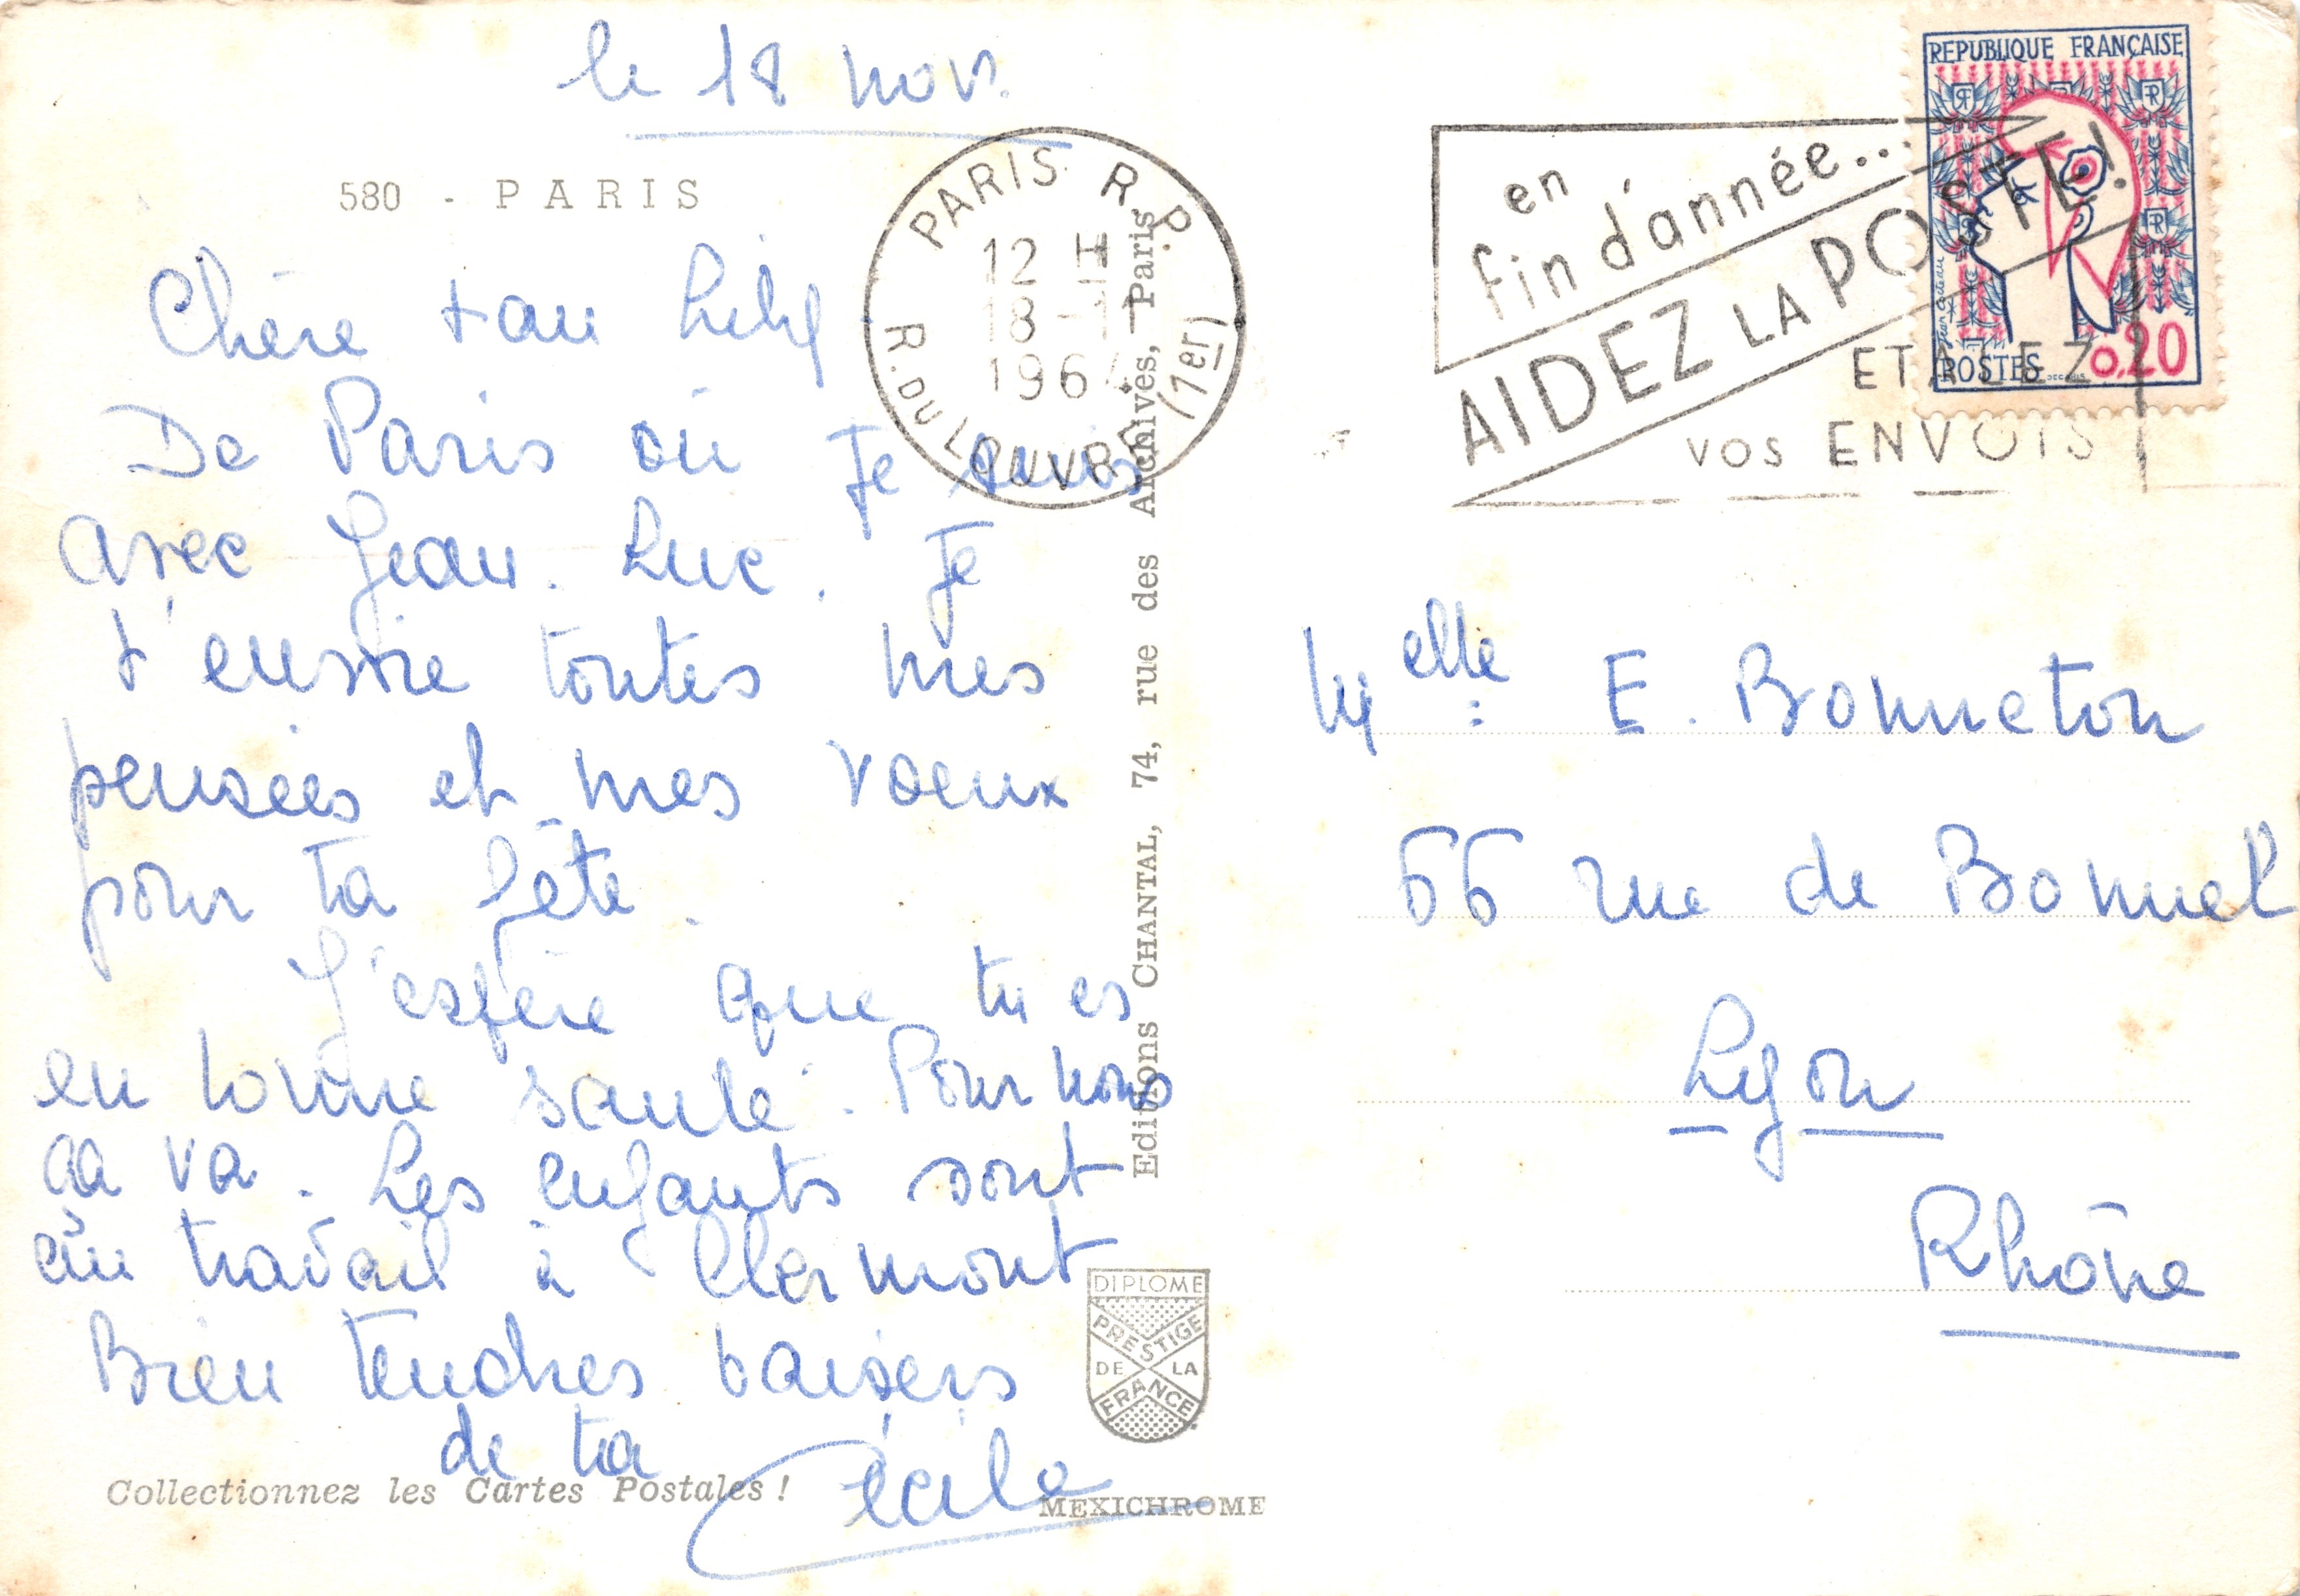 le 18 nov.
580 - PARIS
Chère tan Lily
De Paris où je suis
avec Jean-Luc. Je
t'envoie toutes mes
pensées et mes vœux
pour ta fête.
J'espère que tu es
en bonne santé. Pour nous
ça va. Les enfants sont
au travail à Clermont
Bien tendres baisers
de ta Cécile
Collectionnez les Cartes Postales !
MEXICHROME
Editions CHANTAL, 74, rue des Archives, Paris
DIPLOME
PRESTIGE
DE LA
FRANCE
PARIS R.P.
12 H
18-11
196
R. DU LOUVRE (1er)
en
fin d'année...
AIDEZ LA POSTE!
ETALEZ
VOS ENVOIS
REPUBLIQUE FRANÇAISE
RF
Jean Cocteau
POSTES 0,20
DECARIS
Melle E. Bonneton
66 rue de Bonnel
Lyon
Rhône